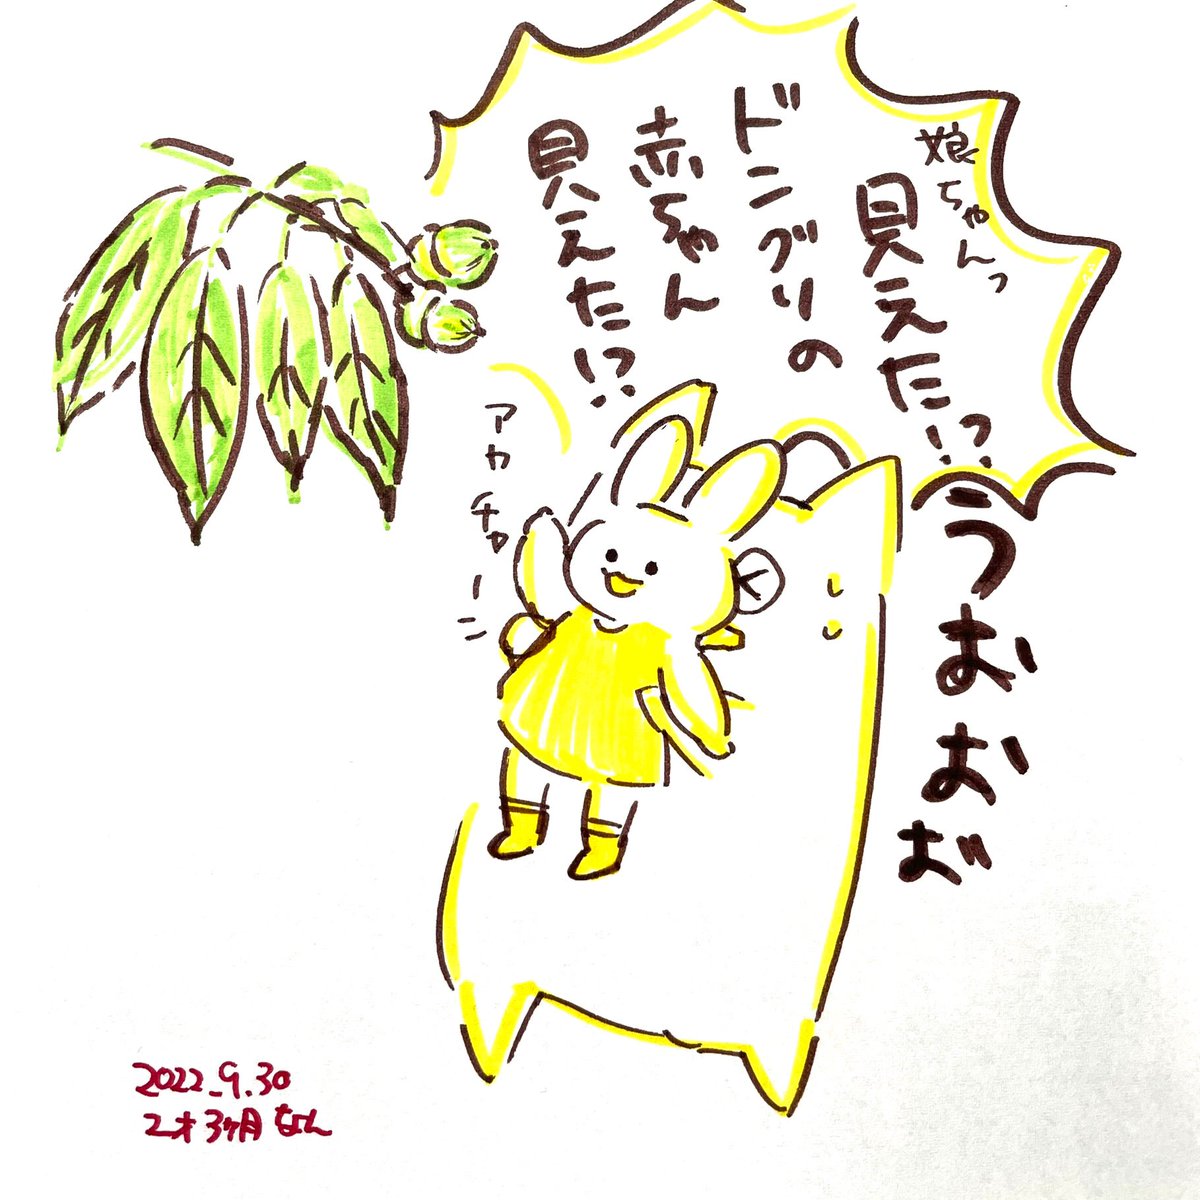 娘ちゃんっ
見えた!?
ドングリの
赤ちゃん
見えた!?
うおおお゛
アカチャーン
2022.9.30
2才3ヶ月なん